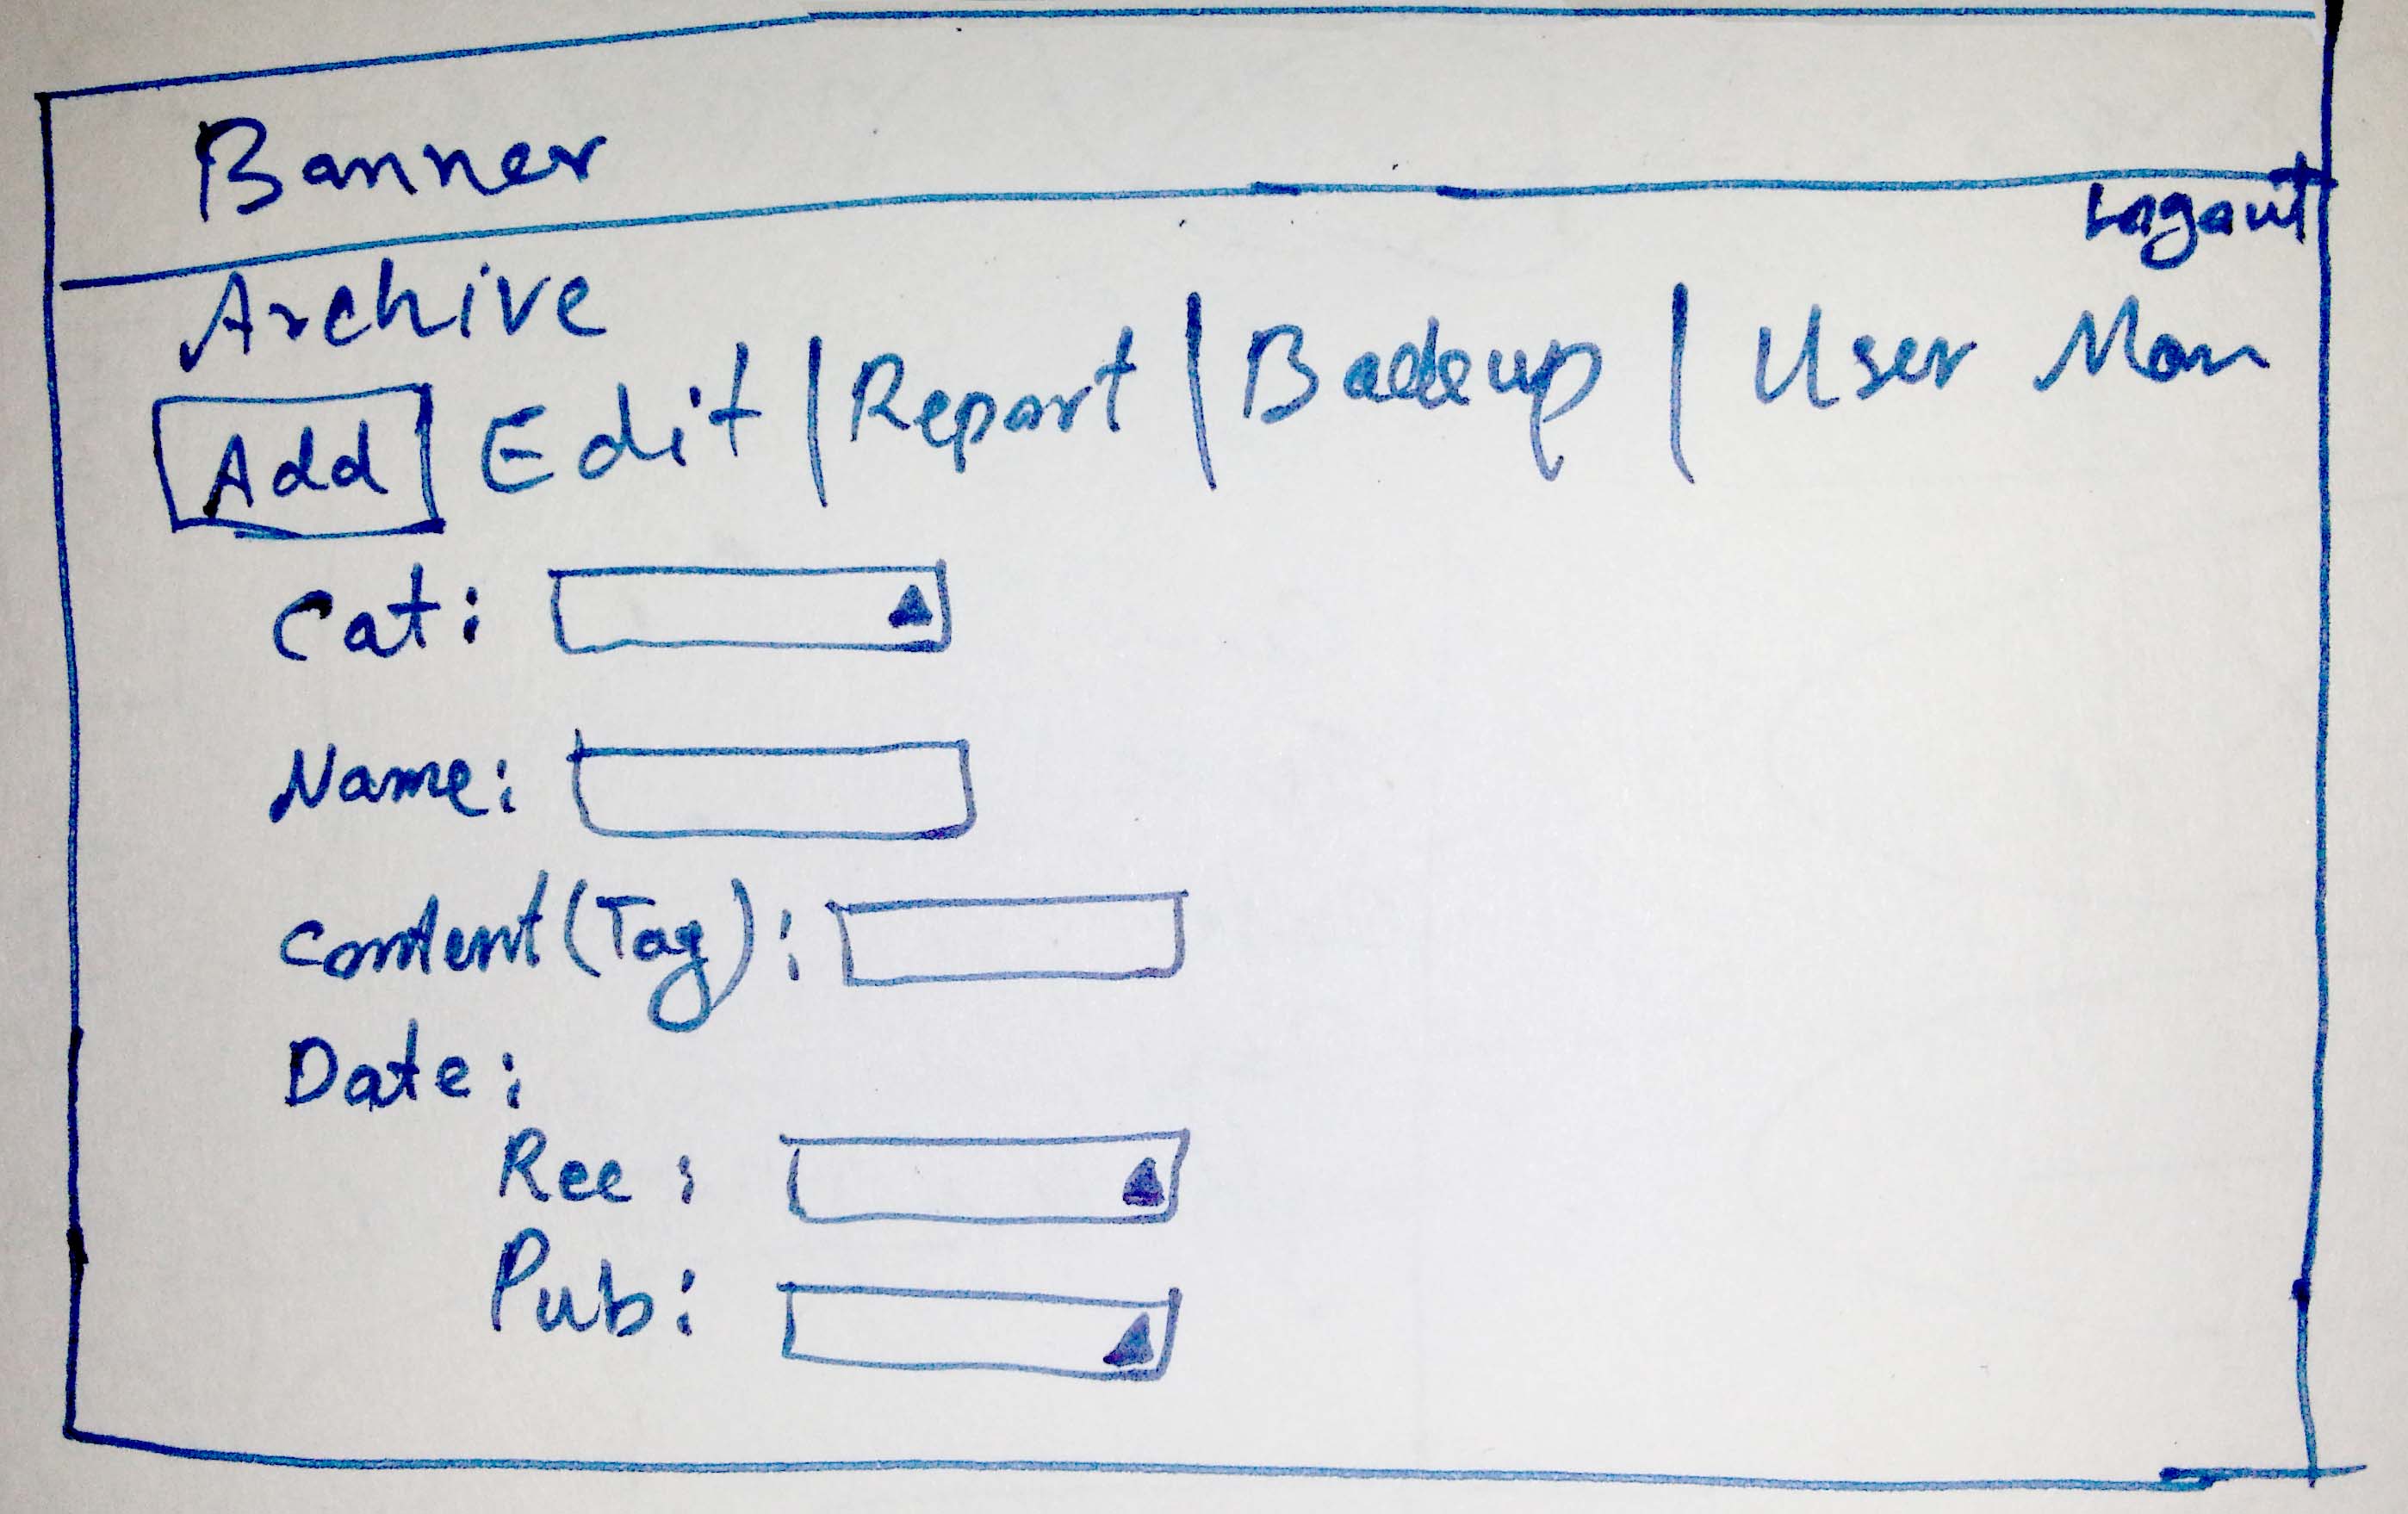 Banner
Logout
Archive
Add Edit | Report | Backup | User Man
Cat:
Name:
Content (Tag):
Date:
Rec:
Pub: